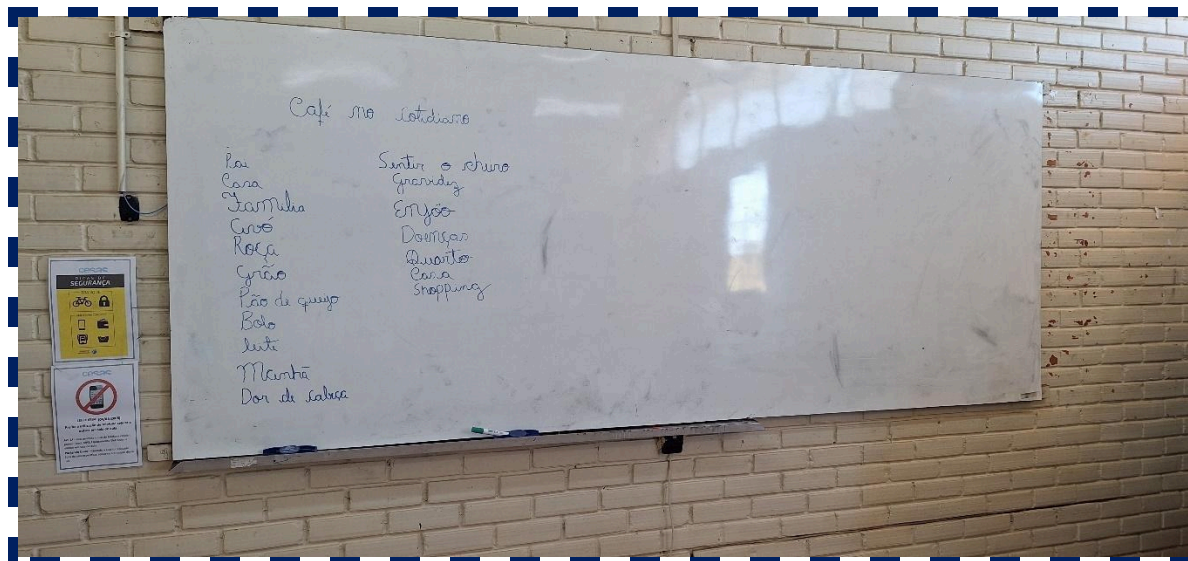 Café no cotidiano
Pai
Casa
Família
Avó
Roça
Grão
Pão de queijo
Bolo
leite
Manhã
Dor de cabeça
Sentir o churo
Gravidez
Enjôo
Doenças
Quarto
Casa
Shopping
DICAS DE
SEGURANÇA